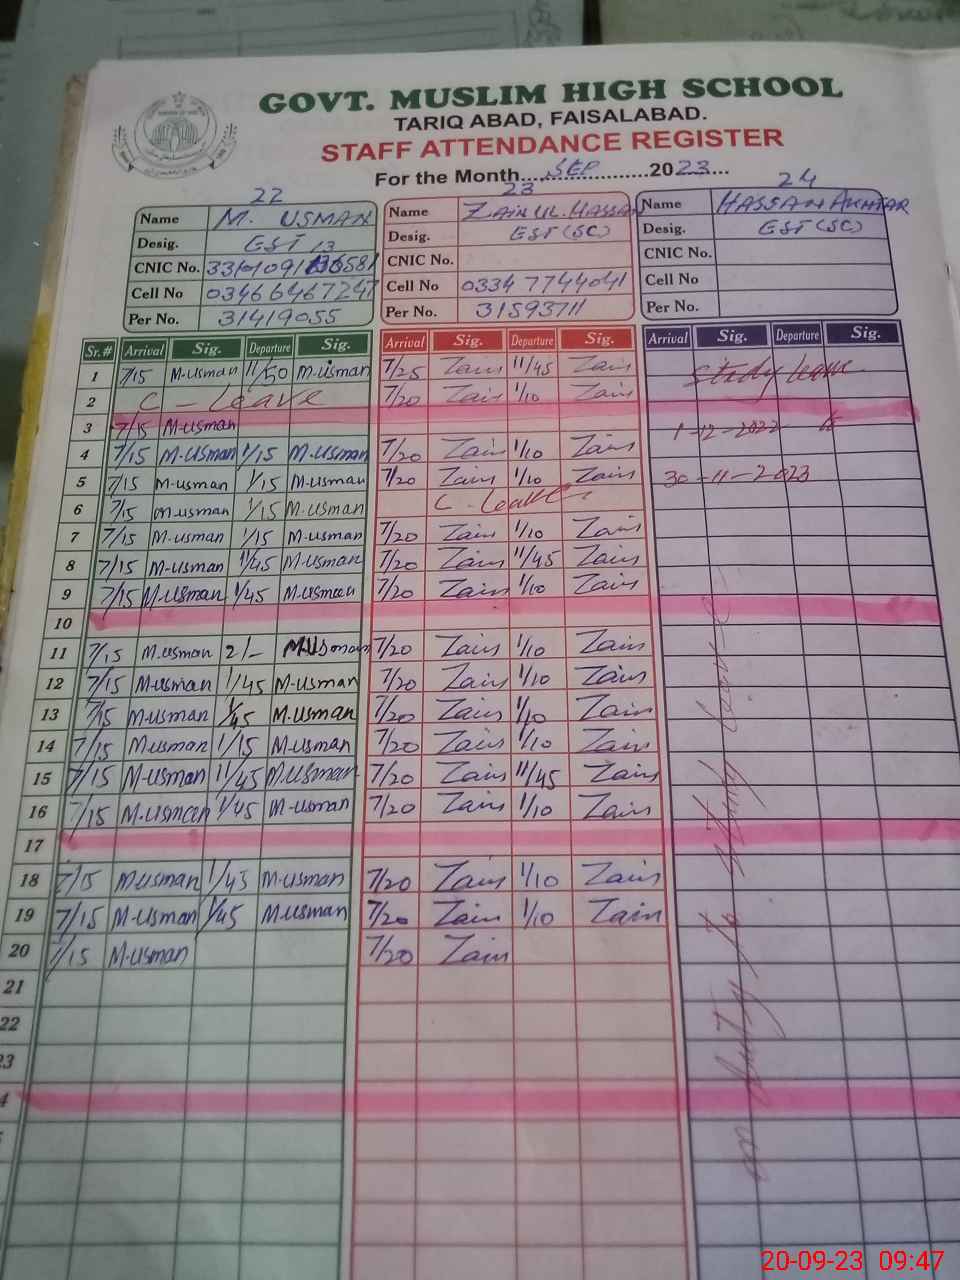 GOVT. MUSLIM HIGH SCHOOL
TARIQ ABAD, FAISALABAD.
STAFF ATTENDANCE REGISTER
For the Month....SEP....2023....
22 23 24
Name M. USMAN Name ZAIN UL. HASSAN Name HASSAN AKHTAR
Desig. EST Desig. EST (SC) Desig. EST (SC)
CNIC No. CNIC No. CNIC No.
Cell No 03466467247 Cell No 0334 7744041 Cell No
Per No. 31419055 Per No. 31593711 Per No.
Sr.# Arrival Sig. Departure Sig. Arrival Sig. Departure Sig. Arrival Sig. Departure Sig.
1 7/15 M.usman 11/50 M.usman 7/25 Zain 11/45 Zain Study leave
2 C - Leave 7/20 Zain 1/10 Zain
3 7/15 M.usman 1-12-2022
4 7/15 M.usman 1/15 M.usman 7/20 Zain 1/10 Zain
5 7/15 M-usman 1/15 M-usman 7/20 Zain 1/10 Zain 30-11-2023
6 7/15 M.usman 1/15 M.usman C - Leave
7 7/15 M-usman 1/15 M-usman 7/20 Zain 1/10 Zain
8 7/15 M-usman 11/45 M-usman 7/20 Zain 11/45 Zain
9 7/15 M-usman 1/45 M-usman 7/20 Zain 1/10 Zain
10
11 7/15 M.usman 2/- M.Usman 7/20 Zain 1/10 Zain
12 7/15 M-usman 1/45 M-usman 7/20 Zain 1/10 Zain
13 7/15 M-usman 1/45 M.usman 7/20 Zain 1/10 Zain
14 7/15 M.usman 1/15 M.usman 7/20 Zain 1/10 Zain
15 7/15 M-usman 11/45 M.usman 7/20 Zain 11/45 Zain
16 7/15 M.usman 1/45 M-usman 7/20 Zain 1/10 Zain
17
18 7/15 M.usman 1/45 M-usman 7/20 Zain 1/10 Zain
19 7/15 M-usman 1/45 M-usman 7/20 Zain 1/10 Zain
20 7/15 M.usman 7/20 Zain
21
22
23
4
on duty to study leave
20-09-23 09:47